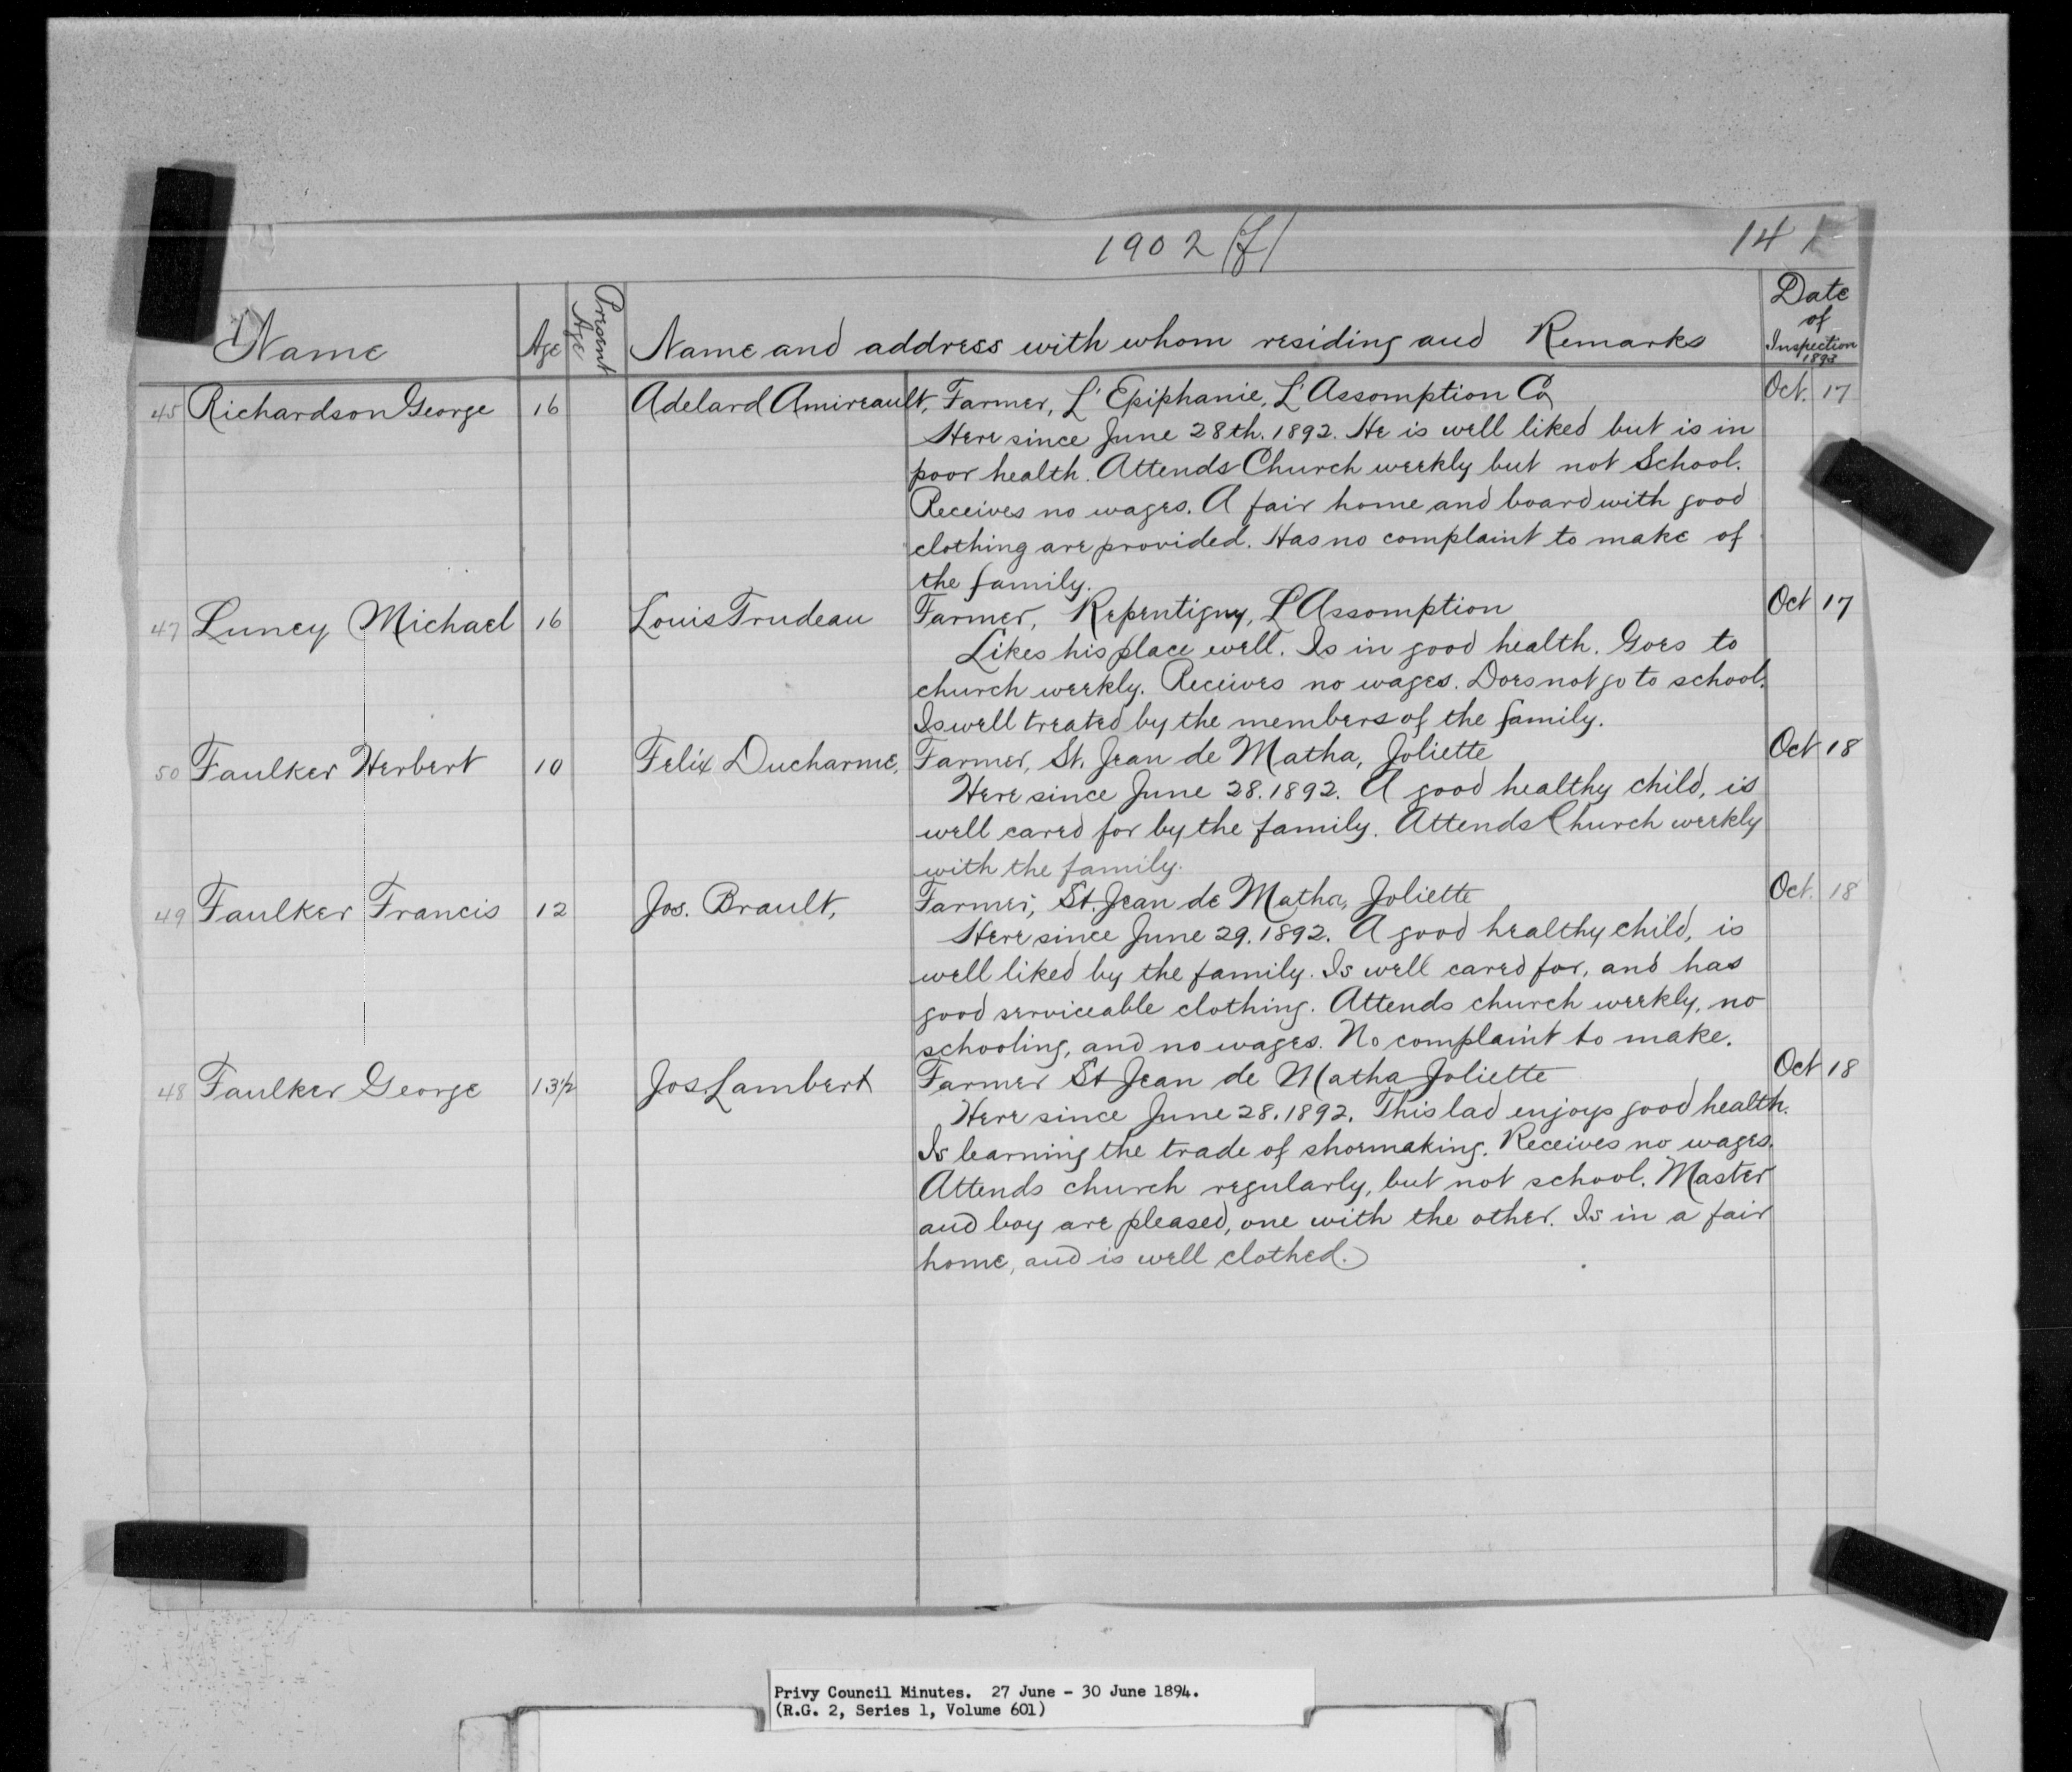 1902 (f) 14
Name Age Present Age Name and address with whom residing and Remarks Date of Inspection 1893
45 Richardson George 16 Adelard Amireault, Farmer, L'Epiphanie, L'Assomption Co Oct. 17
Here since June 28th. 1892. He is well liked but is in
poor health. Attends Church weekly but not School.
Receives no wages. A fair home and board with good
clothing are provided. Has no complaint to make of
the family.
47 Luney Michael 16 Louis Trudeau Farmer, Repentigny, L'Assomption Oct 17
Likes his place well. Is in good health. Goes to
church weekly. Receives no wages. Does not go to school.
Is well treated by the members of the family.
50 Faulker Herbert 10 Felix Ducharme, Farmer, St. Jean de Matha, Joliette Oct 18
Here since June 28. 1892. A good healthy child, is
well cared for by the family. Attends Church weekly
with the family.
49 Faulker Francis 12 Jos. Brault, Farmer, St. Jean de Matha, Joliette Oct. 18
Here since June 29. 1892. A good healthy child, is
well liked by the family. Is well cared for, and has
good serviceable clothing. Attends church weekly, no
schooling, and no wages. No complaint to make.
48 Faulker George 13 1/2 Jos Lambert Farmer St Jean de Matha Joliette Oct 18
Here since June 28. 1892. This lad enjoys good health.
Is learning the trade of shoemaking. Receives no wages.
Attends church regularly, but not school. Master
and boy are pleased, one with the other. Is in a fair
home, and is well clothed.
Privy Council Minutes. 27 June - 30 June 1894.
(R.G. 2, Series 1, Volume 601)